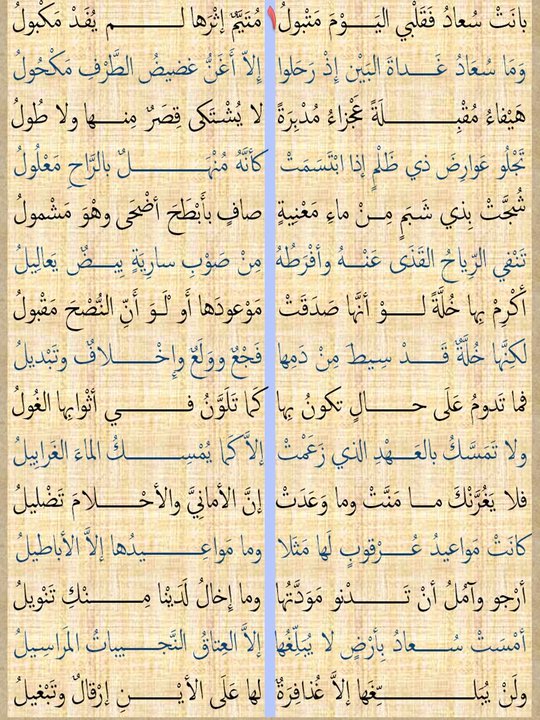 بانَتْ سُعادُ فَقَلْبي اليَـــوْمَ مَتْبولُ ١ مُتَيَّمٌ إثْرَها لـــــــم يُفَدْ مَكْبولُ
وَمَا سُعَادُ غَـــداةَ البَيْنِ إذْ رَحَلوا إلاّ أَغَنُّ غضيضُ الطَّرْفِ مَكْحُولُ
هَيْفاءُ مُقْبِـــــــلَةً عَجْزاءُ مُدْبِرَةً لا يُشْتَكى قِصَرٌ مِنـــها ولا طُولُ
تَجْلُو عَوارِضَ ذي ظَلْمٍ إذا ابْتَسَمَتْ كأنَّهُ مُنْهَـــــــلٌ بالرَّاحِ مَعْلُولُ
شُجَّتْ بِذي شَبَمٍ مِـــنْ ماءِ مَعْنِيةٍ صافٍ بأَبْطَحَ أضْحَى وهْوَ مَشْمولُ
تَنْفي الرِّياحُ القَذَى عَنْـــهُ وأفْرَطَهُ مِنْ صَوْبِ سارِيَةٍ بِيـــضٌ يَعالِيلُ
أكْرِمْ بِها خُلَّةً لـــــوْ أنَّها صَدَقَتْ مَوْعودَها أَو ْلَـوَ أَنِّ النُّصْحَ مَقْبولُ
لكنَّها خُلَّةٌ قَـــدْ سِيطَ مِنْ دَمِها فَجْعٌ ووَلَعٌ وإِخْـــلافٌ وتَبْديلُ
فما تَدومُ عَلَى حـــــالٍ تكونُ بِها كَما تَلَوَّنُ فـــــــي أثْوابِها الغُولُ
ولا تَمَسَّكُ بالعَـــهْدِ الذي زَعَمْتْ إلاَّ كَما يُمْسِـــــكُ الماءَ الغَرابِيلُ
فلا يَغُرَّنْكَ مـــا مَنَّتْ وما وَعَدَتْ إنَّ الأمانِيَّ والأحْـــــلامَ تَضْليلُ
كانَتْ مَواعيدُ عُـــرْقوبٍ لَها مَثَلا وما مَواعِـــــيدُها إلاَّ الأباطيلُ
أرْجو وآمُلُ أنْ تَـــــدْنو مَوَدَّتُها وما إِخالُ لَدَيْنا مِـــــنْكِ تَنْويلُ
أمْسَتْ سُـــعادُ بِأرْضٍ لا يُبَلِّغُها إلاَّ العِتاقُ النَّجـــيباتُ المَراسِيلُ
ولَنْ يُبَلِـــــــغَّها إلاَّ غُذافِرَةٌ لها عَلَى الأيْـــــنِ إرْقالٌ وتَبْغيلُ